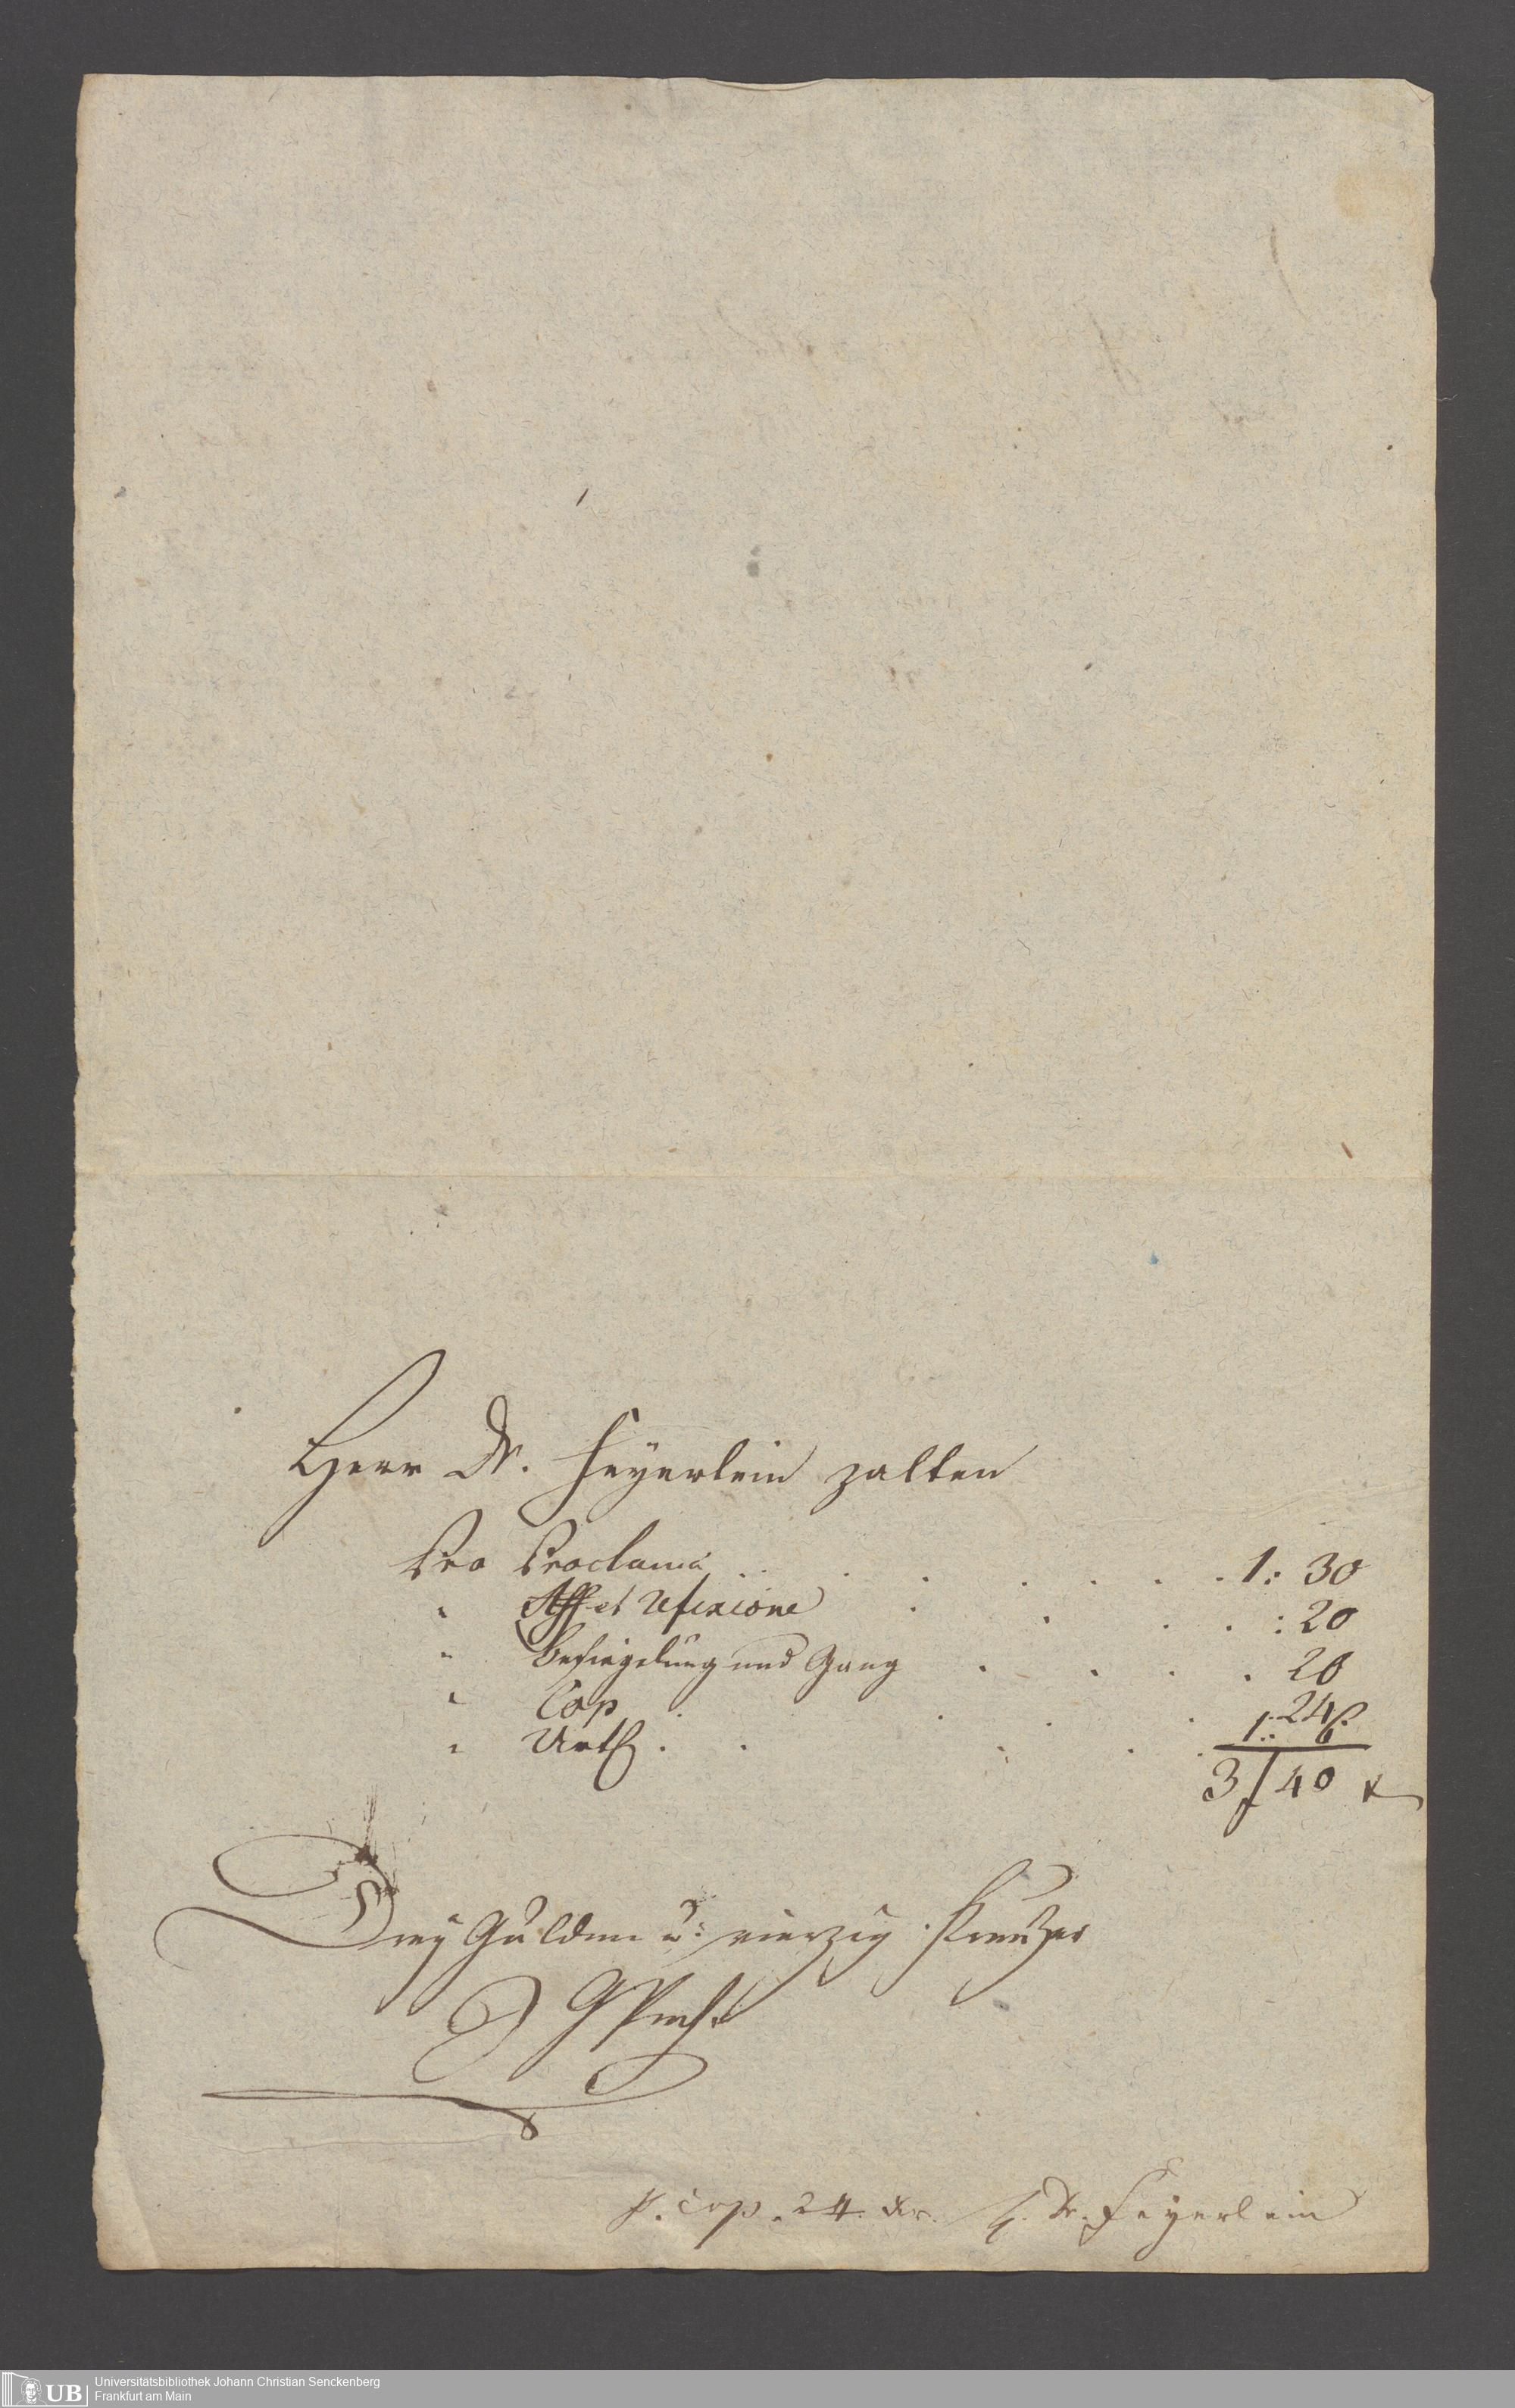 Herr Dr. Feyerlein zalten
Pro Proclama . . . . . . . 1: 30
" Aff et Refixione . . . . : 20
" Besiegelung und Gang . . . . 20
" Cop . . . . 24
" Urth . . . . . 1: 6
3 f 40 x
Drey Gulden u: vierzig Kreutzer
G
p. Cop. 24. xr. H. Dr. Feyerlein
UB
Universitätsbibliothek Johann Christian Senckenberg
Frankfurt am Main